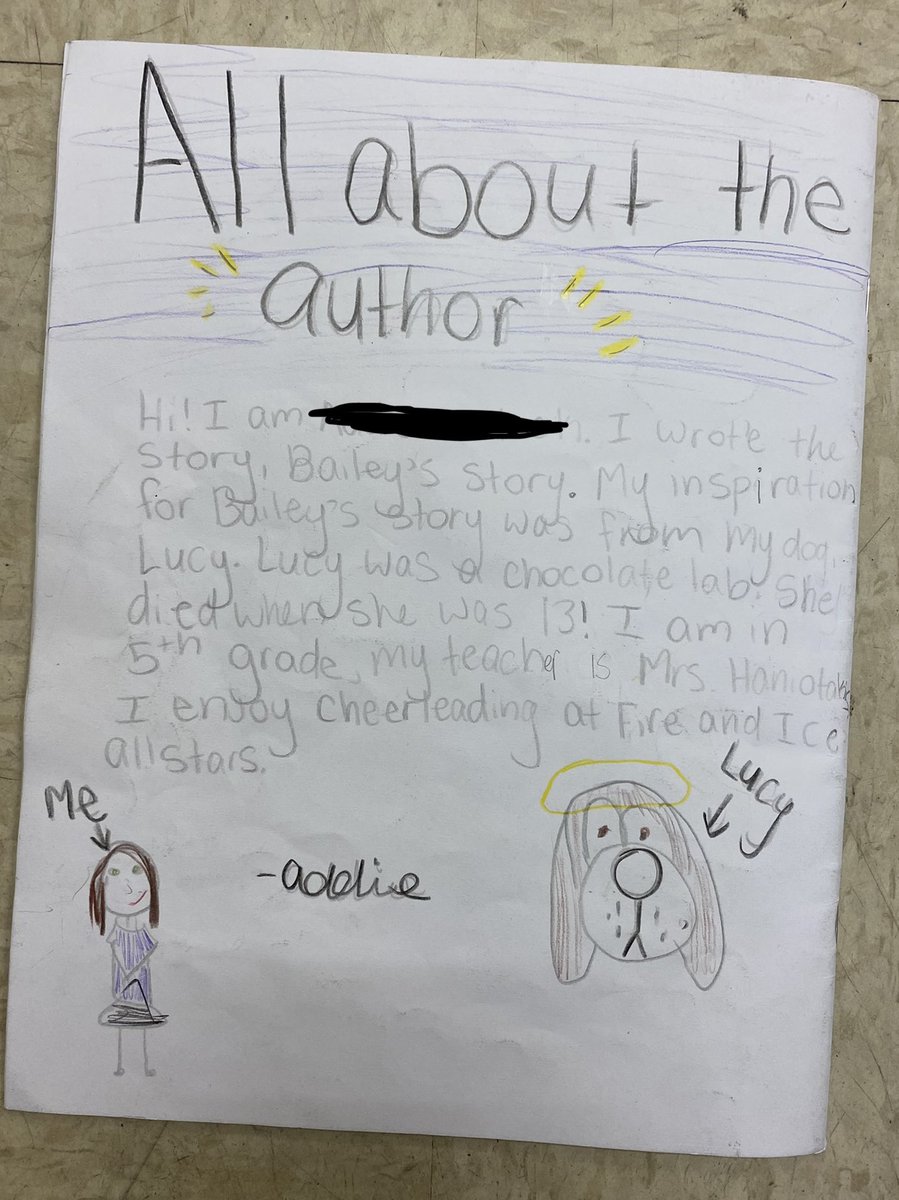 All about the
author
Hi! I am . I wrote the
story, Bailey's story. My inspiration
for Bailey's story was from my dog,
Lucy. Lucy was a chocolate lab. She
died when she was 13! I am in
5th grade, my teacher is Mrs.
I enjoy cheerleading at Fire and Ice
allstars.
Me
Lucy
-addie